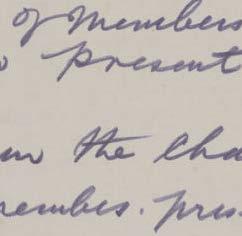 of members
present
the Cha
members. pres